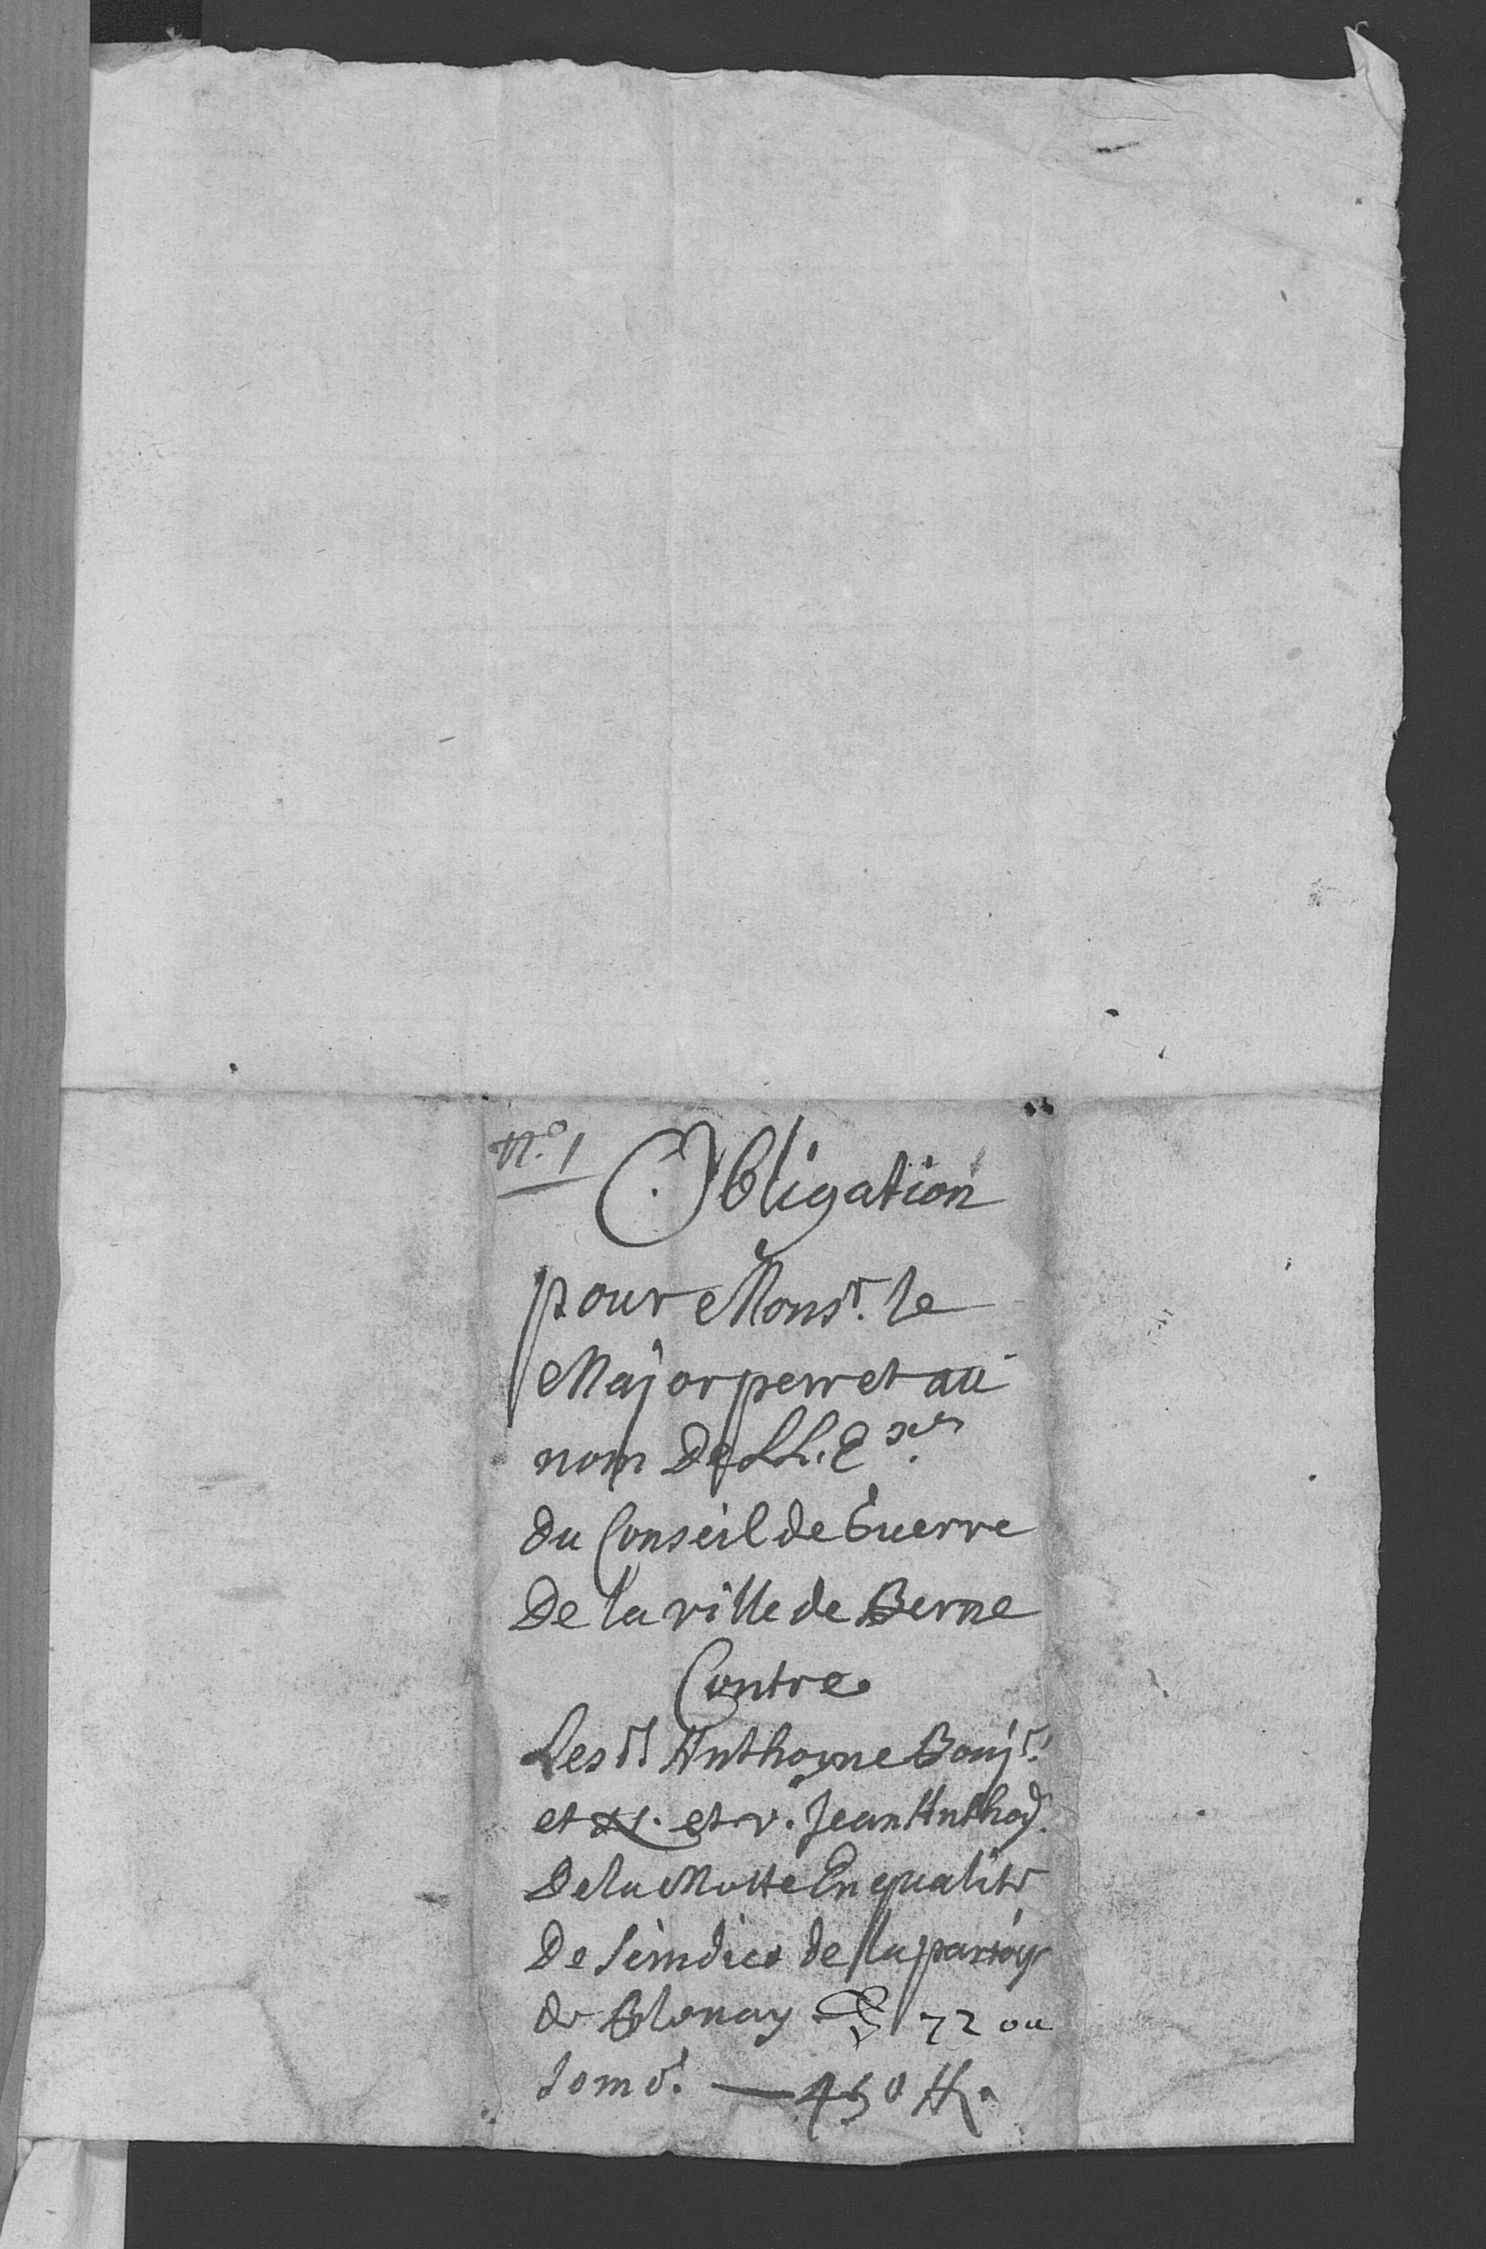 N.° 1
Obligation
pour Mons.r le
Major perret au
nom De LL. Exes.
du Conseil de Guerre
De la ville de Berne
Contre
Les Srs Anthoyne Bonj.r
et et v. Jean Anthoy.
De la Motte En qualite
De sindics de la paroiy
de Blonay 72 ou
som.e — 450 ff.